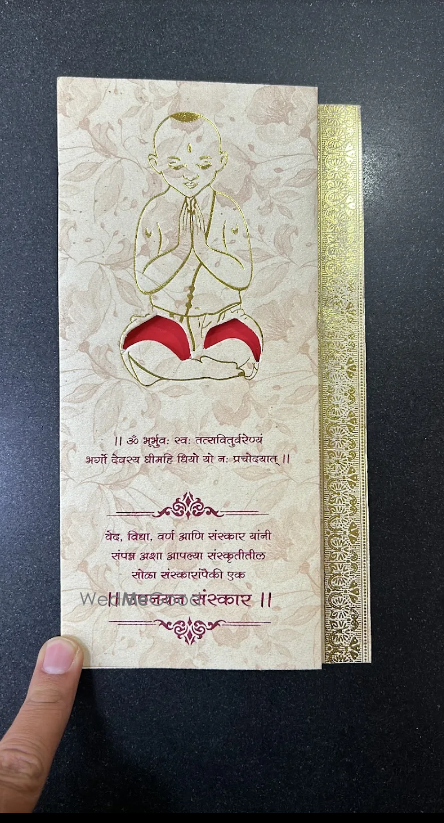 ॥ ॐ भूर्भुवः स्वः तत्सवितुर्वरेण्यं
भर्गो देवस्य धीमहि धियो यो नः प्रचोदयात् ॥
वेद, विद्या, वर्ण आणि संस्कार यांनी
संपन्न अशा आपल्या संस्कृतीतील
सोळा संस्कारांपैकी एक
॥ उपनयन संस्कार ॥